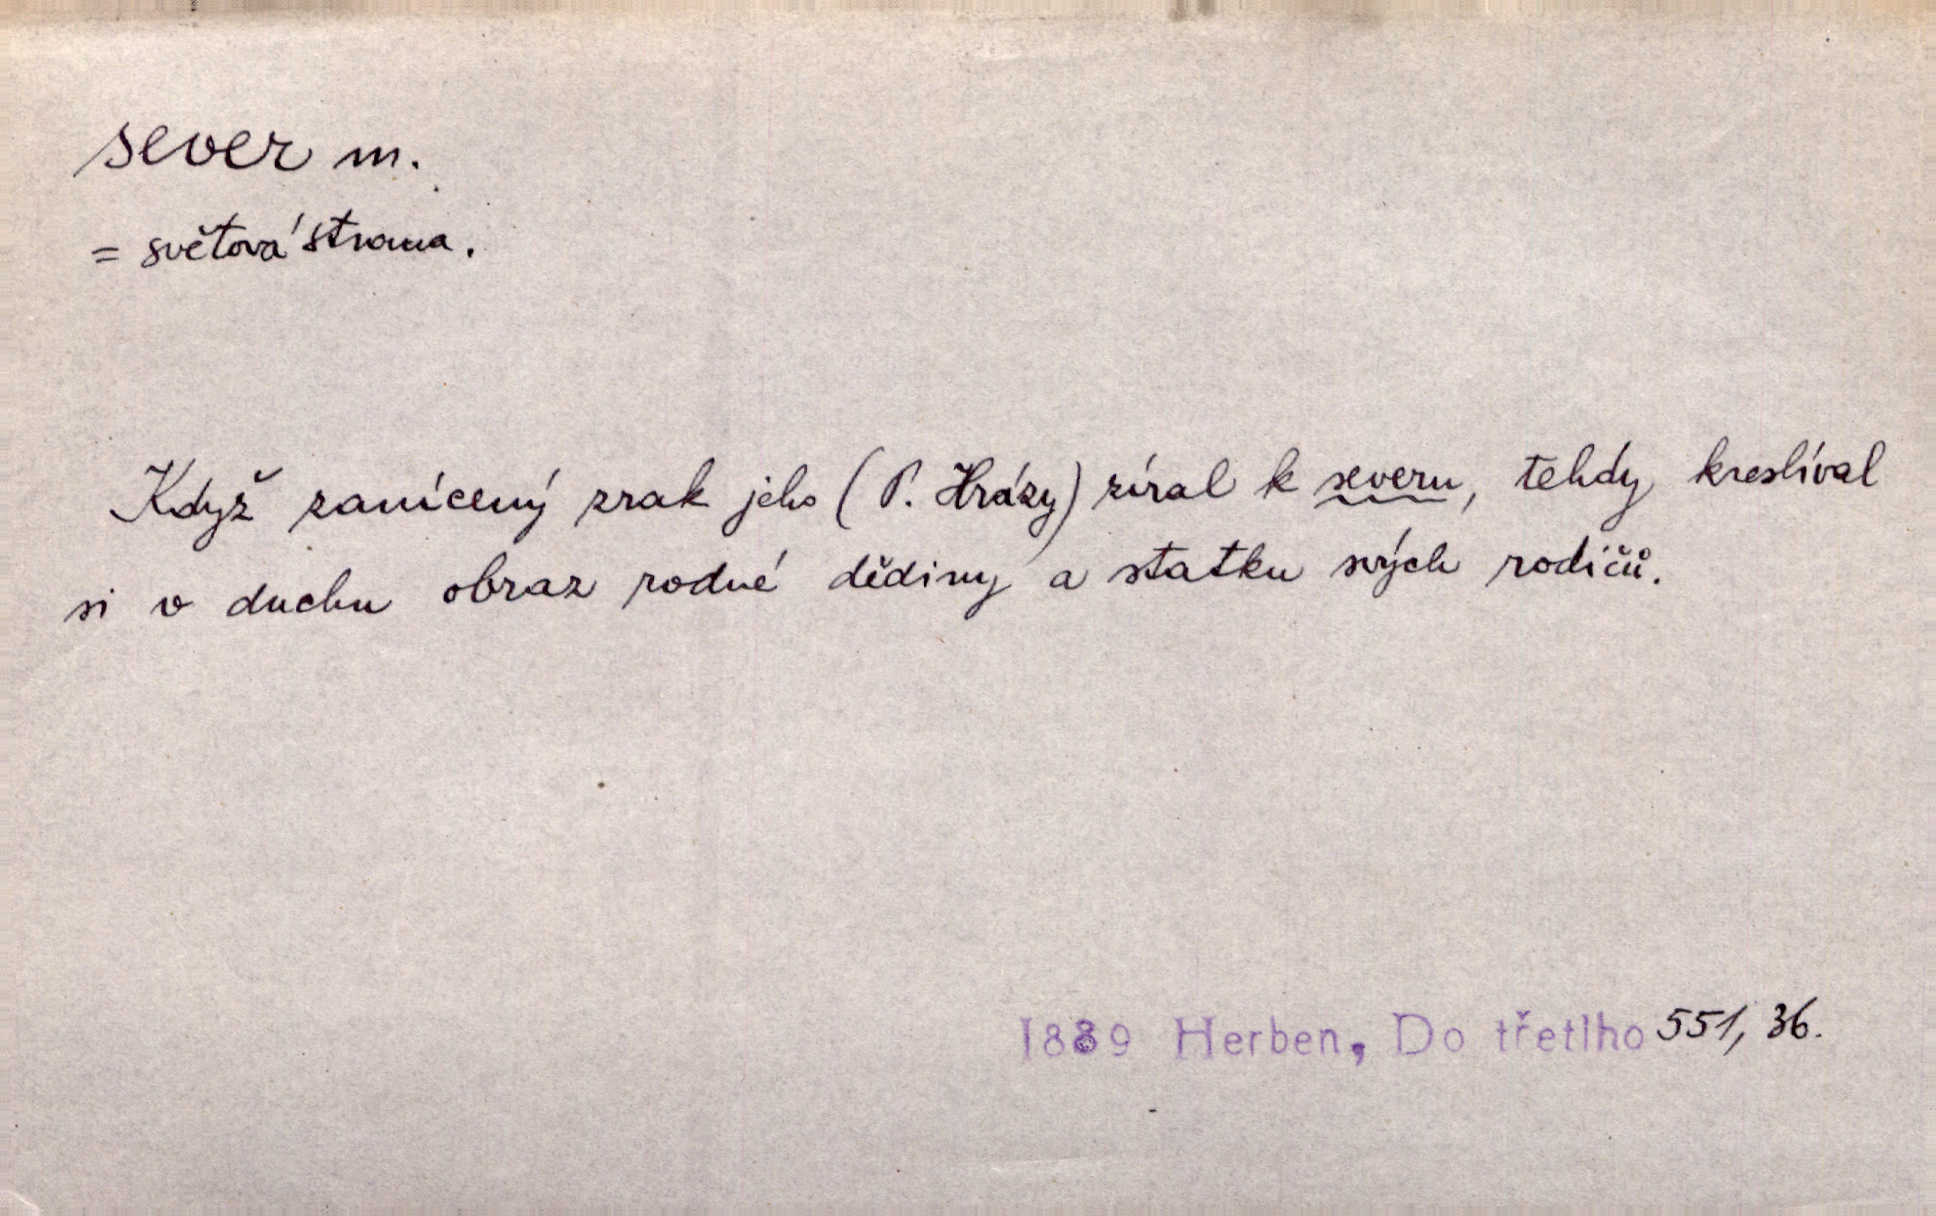 sever m.
= světová strana.
Když zanícený zrak jeho (P. Hrázy) zíral k severu, tehdy kreslíval
si v duchu obraz rodné dědiny a statku svých rodičů.
1889 Herben, Do třetího 551, 36.